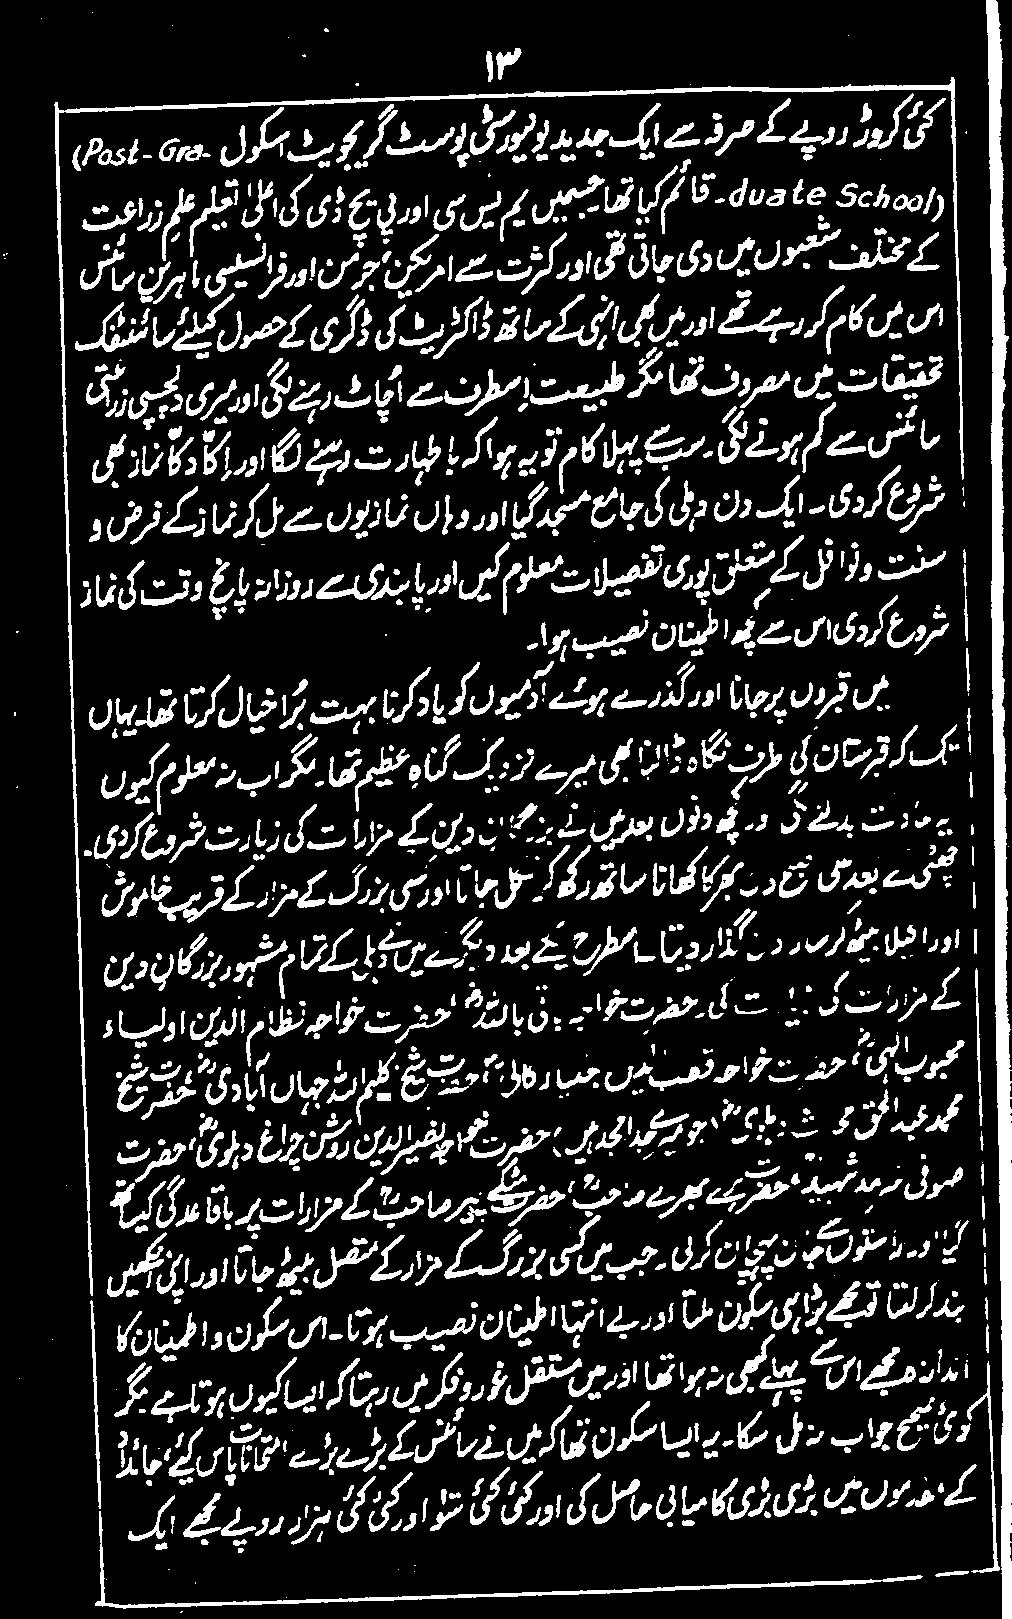 ۱۳
کئی کروڑ روپے کے صرفہ سے ایک جدید یونیورسٹی پوسٹ گریجویٹ اسکول (Post-Gra-
duate School) قائم کیا تھا۔ جسمیں یم یس سی اور پی یچ ڈی کی اعلیٰ تعلیم علم زراعت
کے مختلف شعبوں میں دی جاتی تھی اور کثرت سے امریکن، جرمن اور فرانسیسی ماہرین سائنس
اس میں کام کر رہے تھے اور میں بھی انہی کے ساتھ ڈاکٹریٹ کی ڈگری کے حصول کیلئے سائنٹفک
تحقیقات میں مصروف تھا مگر طبیعت اِسطرف سے اُچاٹ رہنے لگی اور میری دلچسپی زراعتی
سائنس سے کم ہونے لگی۔ سب سے پہلا کام تو یہ ہوا کہ باطہارت رہنے لگا اور اِکّا دکّا نماز بھی
شروع کر دی۔ ایک دن دہلی کی جامع مسجد گیا اور وہاں نمازیوں سے مل کر نماز کے فرض و
سنت و نوافل کے متعلق پوری تفصیلات معلوم کیں اور پابندی سے روزانہ پانچ وقت کی نماز
شروع کر دی اس سے کچھ اطمینان نصیب ہوا۔
میں قبروں پر جانا اور گذرے ہوئے آدمیوں کو یاد کرنا بہت بُرا خیال کرتا تھا۔ یہاں
تک کہ قبرستان کی طرف نگاہ ڈالنا بھی میرے نزدیک گناہِ عظیم تھا۔ مگر اب نہ معلوم کیوں
یہ عادت بدلنے لگی اور کچھ دنوں بعد میں نے بزرگانِ دین کے مزارات کی زیارت شروع کر دی۔
چھٹی کے بعد صبح دن بھر کا کھانا ساتھ رکھ کر نکل جاتا اور کسی بزرگ کے مزار کے قریب خاموش
اور اکیلا بیٹھ کر سارا دن گذار دیتا۔ اسطرح یکے بعد دیگرے میں نے دہلی کے تمام مشہور بزرگانِ دین
کے مزارات کی زیارت کی۔ حضرت خواجہ باقی باللہؒ، حضرت خواجہ نظام الدین اولیاء
محبوب الٰہیؒ، حضرت خواجہ قطب الدین بختیار کاکیؒ، حضرت شیخ کلیم اللہ جہاں آبادیؒ، حضرت شیخ
محمد عبدالحق محدث دہلویؒ (جو میرے جد امجد ہیں)، حضرت خواجہ نصیرالدین روشن چراغ دہلویؒ، حضرت
صوفی سرمد شہیدؒ، حضرت ہرے بھرے صاحبؒ، حضرت مٹکے پیر صاحبؒ کے مزارات پر باقاعدگی کیساتھ
گیا اور راستوں سے جان پہچان کر لی۔ جب میں کسی بزرگ کے مزار کے متصل بیٹھ جاتا اور اپنی آنکھیں
بند کر لیتا تو مجھے بڑا ہی سکون ملتا اور بے انتہا اطمینان نصیب ہوتا۔ اس سکون و اطمینان کا
اندازہ مجھے اس سے پہلے کبھی نہ ہوا تھا اور میں مستقل غور و فکر میں رہتا کہ ایسا کیوں ہوتا ہے مگر
کوئی صحیح جواب نہ مل سکا۔ یہ ایسا سکون تھا کہ میں نے سائنس کے بڑے بڑے امتحانات پاس کیے،
کے مقدموں میں بڑی بڑی کامیابی حاصل کی اور کئی کئی سَو اور کئی کئی ہزار روپے مجھے ایک